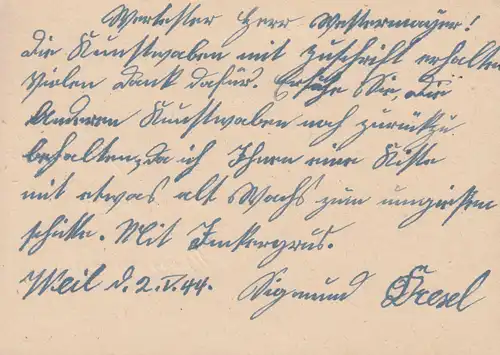 Wertester Herr Westermayer!
Die Kunstwaben mit Zuschrift erhalten
vielen Dank dafür. Ersuche Sie, die
Anderen Kunstwaben noch zurückzu
behalten, da ich Ihnen eine Kiste
mit etwas alt Wachs zum umgießen
schicke. Mit Imkergrus.
Weil d. 2.V.44. Sigmund